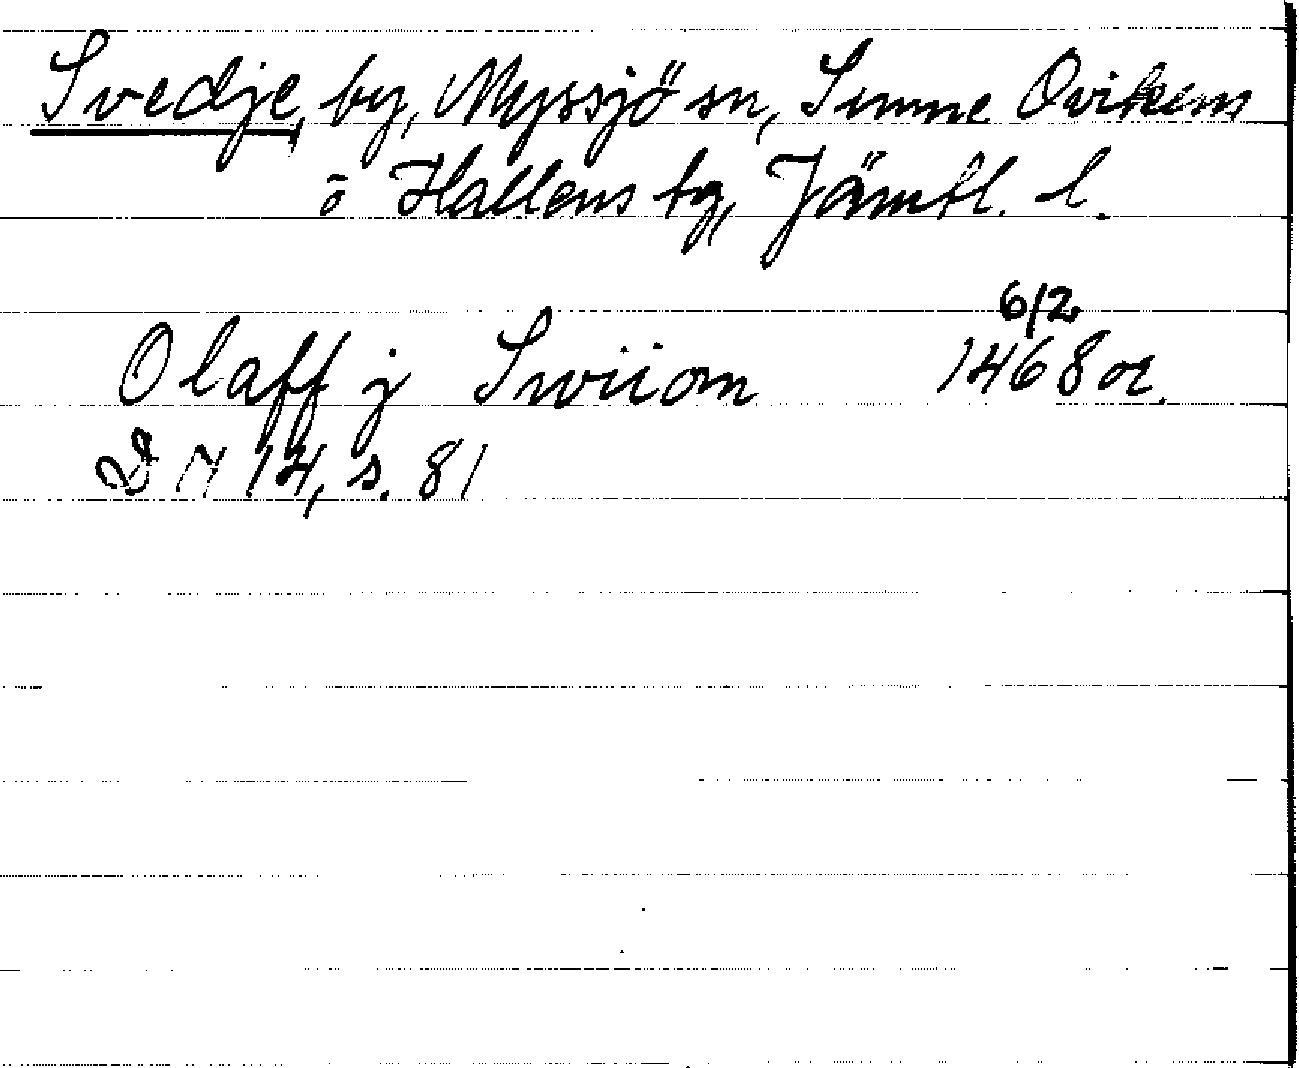 Svedje, by, Myssjö sn, Sunne Ovikens
o Hallens tg, Jämtl. l.
6/2
Olaff j Swiiom 1468 or.
DN 14, s. 81